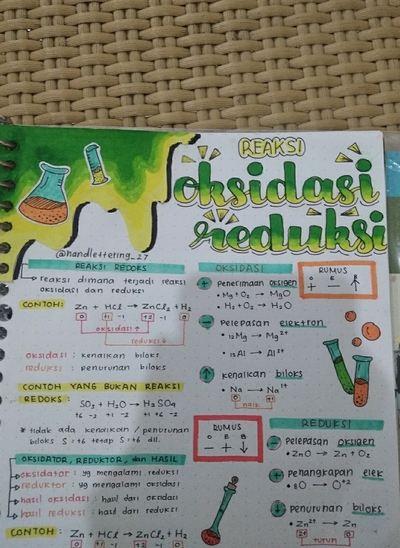 REAKSI
oksidasi
reduksi
@handlettering_27
REAKSI REDOKS
reaksi dimana terjadi reaksi
oksidasi dan reduksi
CONTOH:
Zn + HCl → ZnCl₂ + H₂
0 +1 -1 +2 -1 0
oksidasi ↑
reduksi ↓
oksidasi : kenaikan biloks
reduksi : penurunan biloks
CONTOH YANG BUKAN REAKSI
REDOKS:
SO₃ + H₂O → H₂SO₄
+6 -2 +1 -2 +1 +6 -2
* tidak ada kenaikan / penurunan
biloks S = +6 tetap S = +6 dll.
OKSIDATOR, REDUKTOR, dan HASIL
oksidator : yg mengalami reduksi
reduktor : yg mengalami oksidasi
hasil oksidasi : hasil dari oksidasi
hasil reduksi : hasil dari reduksi
CONTOH:
Zn + HCl → ZnCl₂ + H₂
0 +1 -1 +2 -1 0
OKSIDASI
RUMUS
O E B
+ - ↑
+ Penerimaan oksigen
• Mg + O₂ → MgO
• H₂ + O₂ → H₂O
- Pelepasan elektron
• ₁₂Mg → Mg²⁺
• ₁₃Al → Al³⁺
↑ kenaikan biloks
• Na → Na¹⁺
naik
RUMUS
O E B
- + ↓
REDUKSI
- Pelepasan oksigen
• ZnO → Zn + O₂
+ Penangkapan elek
• ₈O → O⁺²
↓ Penurunan biloks
• Zn²⁺ → Zn
+2 0
turun